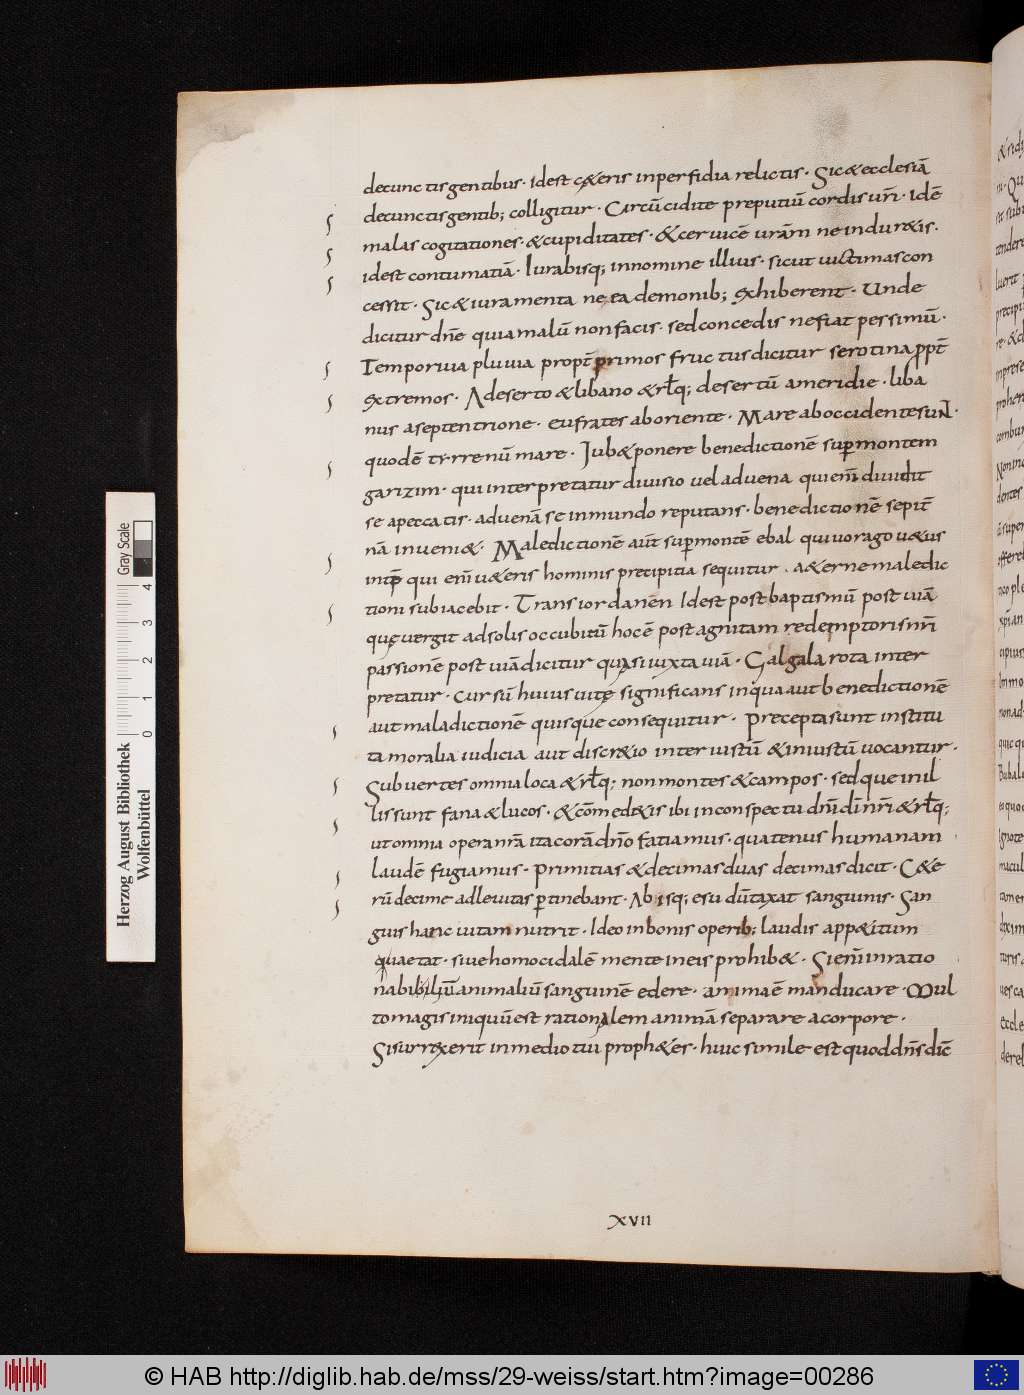 decunctis gentibus · idest c&eris inperfidia relictis · Sic & ecclesiā
decunctis gentib; colligitur · Circūcidite preputiū cordis urī · Idē
malas cogitationes · & cupiditates · & ceruicē urām ne indur&is ·
idest contumatiā · Iurabisq; innomine illius · sicut uictimas con
cessit · Sic & iuramenta ne ea demonib; exhiberent · Unde
dicitur dn̄e quia malū non facis · sed concedis ne fiat pessimū ·
Temporiua pluuia propt̄ primos fructus dicitur serotina ꝓpt̄
extremos · Adeserto & libano & rl̄q; desertū ameridie · liba
nus aseptentrione · eufrates aboriente · Mare aboccidente sun̄ ·
quodē tyrrenū mare · Iub& ponere benedictionē suꝑmontem
garizim · qui interpretatur diuisio uel aduena qui enī diuidit
se apeccatis · aduenā se inmundo reputans · benedictionē sepit̄
nā inueni& · Maledictionē aūt suꝑmontē ebal qui uorago u&us
intp̄ qui enī u&eris hominis precipitia sequitur · a&erne maledic
tioni subiacebit · Trans iordanēn Idest post baptismū post uiā
quę uergit adsolis occubitū hocē post agnitam redemptoris nr̄i
passionē post uiā dicitur quasi iuxta uiā · Galgala rota inter
pretatur · cursū huius uitę significans inqua aut benedictionē
aut maladictionē quisque consequitur · Precepta sunt institu
ta moralia iudicia aut discr&io inter iustū & iniustū uocantur ·
Subuertes omnia loca & rl̄q; non montes & campos · sed que inil
lis sunt fana & lucos · & cōmed&is ibi inconspectu dn̄i dī nr̄i & rl̄q;
ut omnia opera nr̄a ita corā dn̄o fatiamus · quatenus humanam
laudē fugiamus · Primitias & decimas duas decimas dicit · C&e
rū decime adleuitas ꝑtinebant · Ab isq; esu dūtaxat sanguinis · San
guis hanc uitam nutrit · Ideo inbonis operib; laudis app&itum
quae tat · siue homocidalē mente ineis prohib& · Si enī inratio
nabiliū animaliū sanguinē edere · animaē manducare · Mul
to magis iniquū est rationalem animā separare acorpore ·
Si surrexerit inmedio tui proph&es · huic simile est quod dn̄s dic̄
XVII
Gray Scale
4
3
2
1
0
Herzog August Bibliothek
Wolfenbüttel
© HAB http://diglib.hab.de/mss/29-weiss/start.htm?image=00286